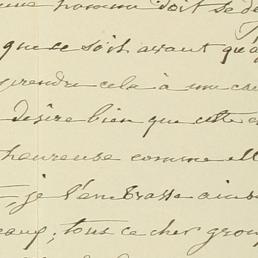 homme doit se de
que ce soit avant qu
prendre cela à une
désire bien que cette
heureuse comme ell
je l'embrasse ains
tous ce cher grou